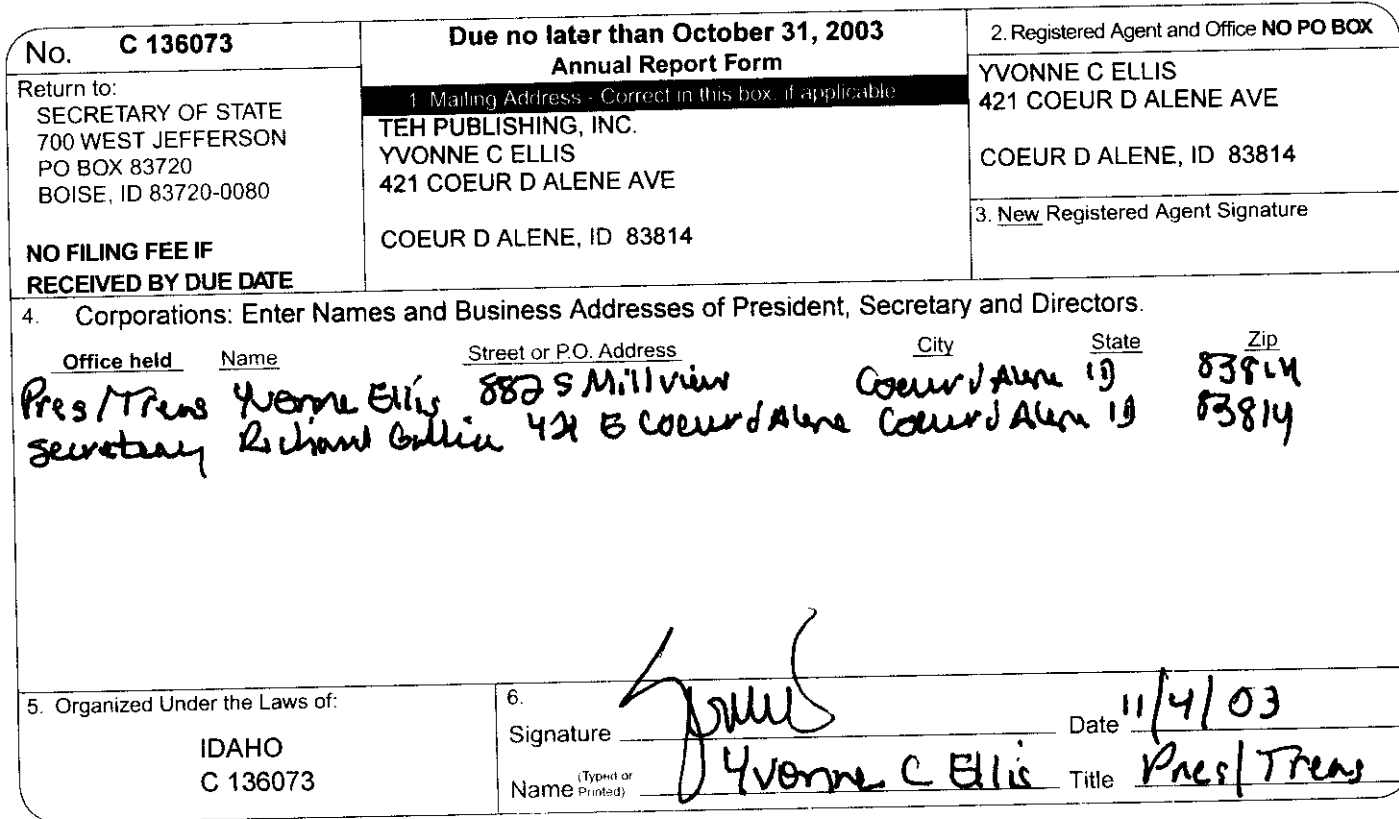 No. C 136073
Return to:
SECRETARY OF STATE
700 WEST JEFFERSON
PO BOX 83720
BOISE, ID 83720-0080
NO FILING FEE IF
RECEIVED BY DUE DATE
Due no later than October 31, 2003
Annual Report Form
1 Mailing Address - Correct in this box, if applicable
TEH PUBLISHING, INC.
YVONNE C ELLIS
421 COEUR D ALENE AVE
COEUR D ALENE, ID 83814
2. Registered Agent and Office NO PO BOX
YVONNE C ELLIS
421 COEUR D ALENE AVE
COEUR D ALENE, ID 83814
3. New Registered Agent Signature
4. Corporations: Enter Names and Business Addresses of President, Secretary and Directors.
Office held Name Street or P.O. Address City State Zip
Pres/Treas Yvonne Ellis 882 S Millview Coeur d Alene ID 83814
Secretary Richard 421 E Coeur d Alene Coeur d Alene ID 83814
5. Organized Under the Laws of:
IDAHO
C 136073
6.
Signature Date 11/4/03
Name (Typed or Printed) Yvonne C Ellis Title Pres/Treas